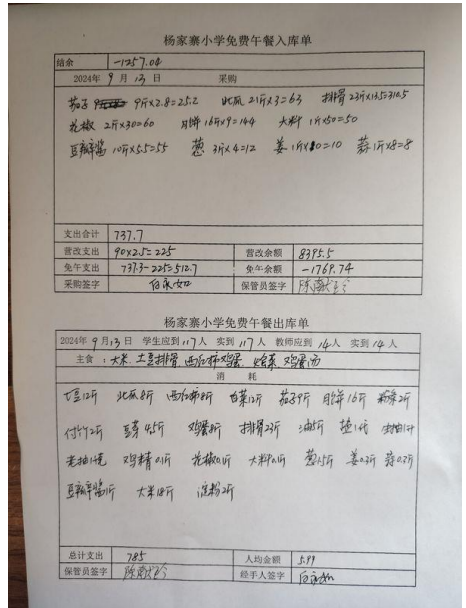 杨家寨小学免费午餐入库单
结余 -1257.04
2024年 9 月 13 日 采购
茄子 9斤×2.8=25.2 北瓜 21斤×3=63 排骨 23斤×13.5=310.5
花椒 2斤×30=60 月饼 16斤×9=144 大料 1斤×50=50
豆瓣酱 10斤×5.5=55 葱 3斤×4=12 姜 1斤×10=10 蒜 1斤×8=8
支出合计 737.7
营改支出 90×2.5=225 营改余额 8395.5
免午支出 737.3-225=512.7 免午余额 -1769.74
采购签字 保管员签字
杨家寨小学免费午餐出库单
2024年 9 月 13 日 学生应到 117 人 实到 117 人 教师应到 14 人 实到 14 人
主食: 大米、土豆排骨、西红柿鸡蛋、鸡蛋汤
消 耗
土豆12斤 北瓜8斤 西红柿8斤 白菜12斤 茄子9斤 月饼16斤 粉条2斤
付竹2斤 豆芽4.5斤 鸡蛋8斤 排骨23斤 油5斤 盐1代 生抽1斤
老抽1壶 鸡精0.1斤 花椒0.1斤 大料0.1斤 葱1.5斤 姜0.3斤 蒜0.3斤
豆瓣酱1斤 大米18斤 淀粉2斤
总计支出 785 人均金额 5.99
保管员签字 经手人签字